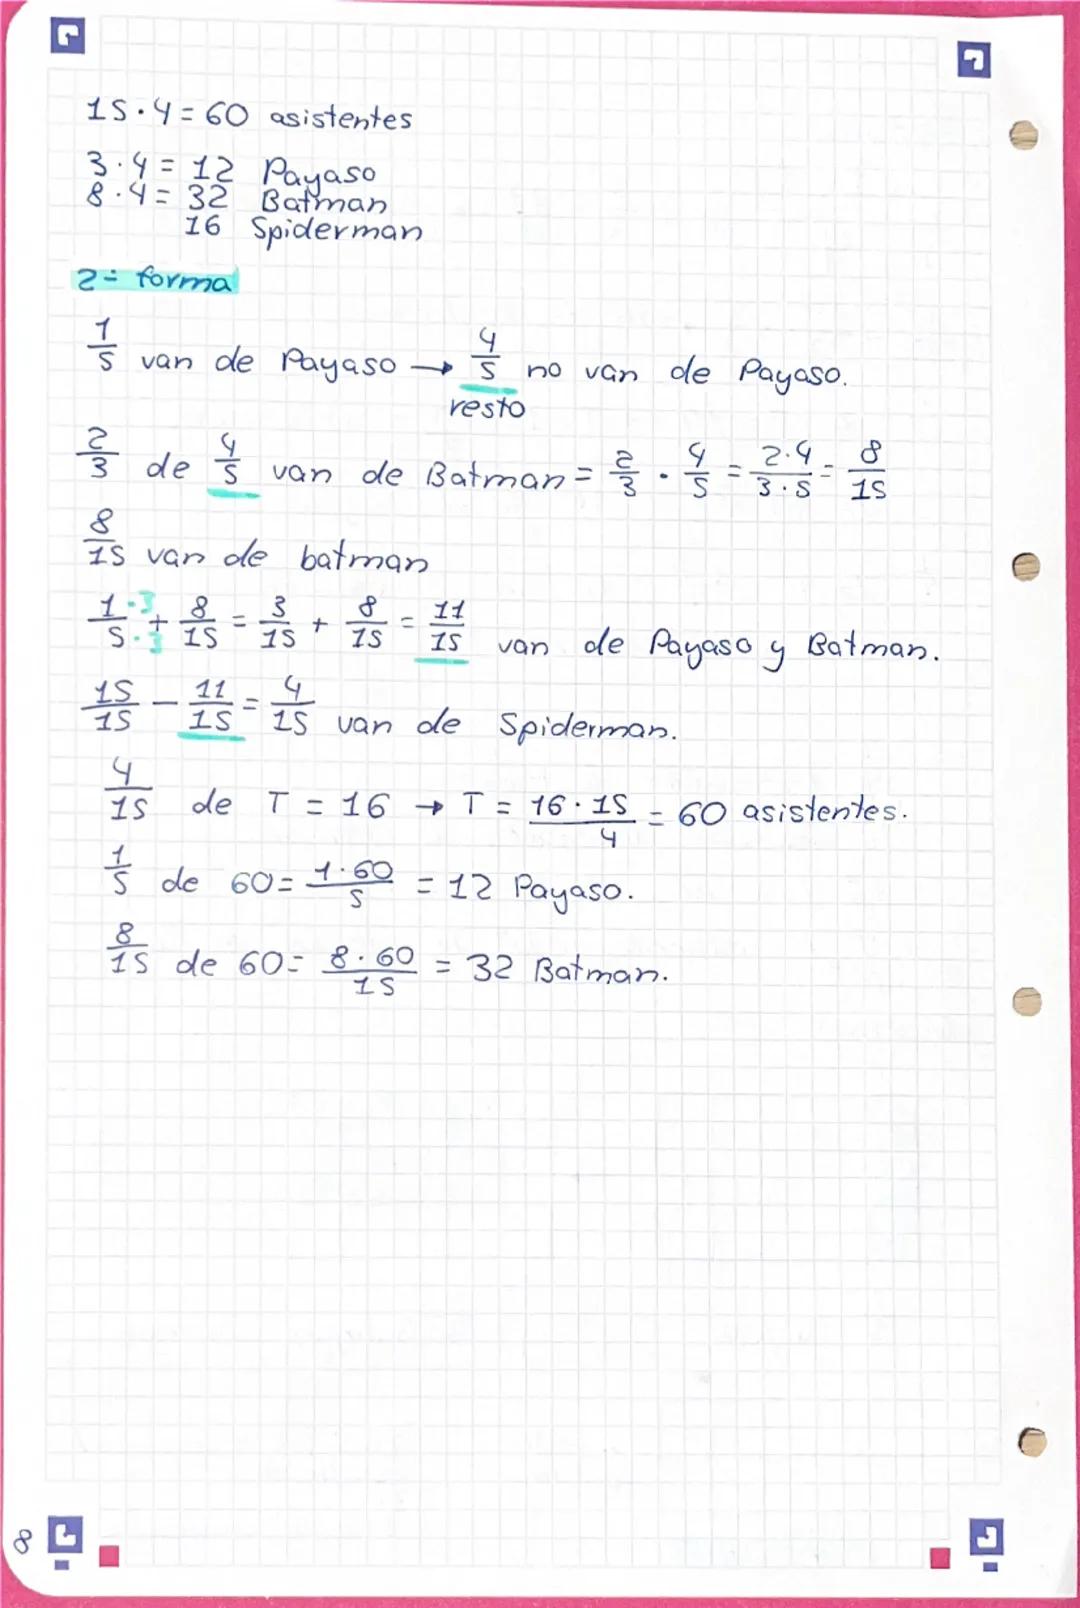 15·4=60 asistentes
3·4=12 Payaso
8·4=32 Batman
16 Spiderman
2ª forma
1/5 van de Payaso → 4/5 no van de Payaso.
resto
2/3 de 4/5 van de Batman = 2/3 · 4/5 = 2·4/3·5 = 8/15
8/15 van de batman
1·3/5·3 + 8/15 = 3/15 + 8/15 = 11/15 van de Payaso y Batman.
15/15 - 11/15 = 4/15 van de Spiderman.
4/15 de T = 16 → T = 16·15/4 = 60 asistentes.
1/5 de 60 = 1·60/5 = 12 Payaso.
8/15 de 60 = 8·60/15 = 32 Batman.
8